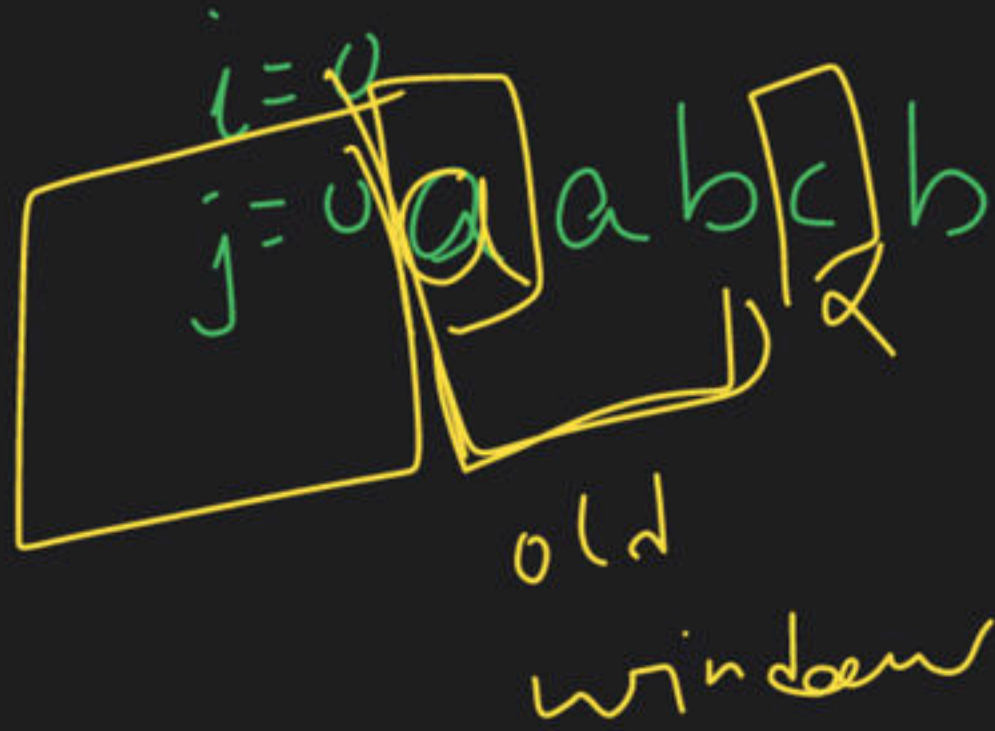 i = 0
j = 0 a a b c b
old
window